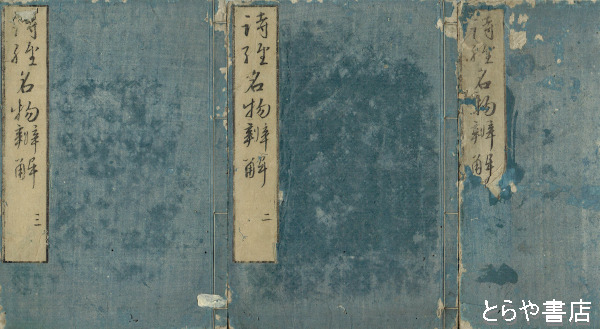 詩經名物辨解
詩經名物辨解 二
詩經名物辨解 三
とらや書店